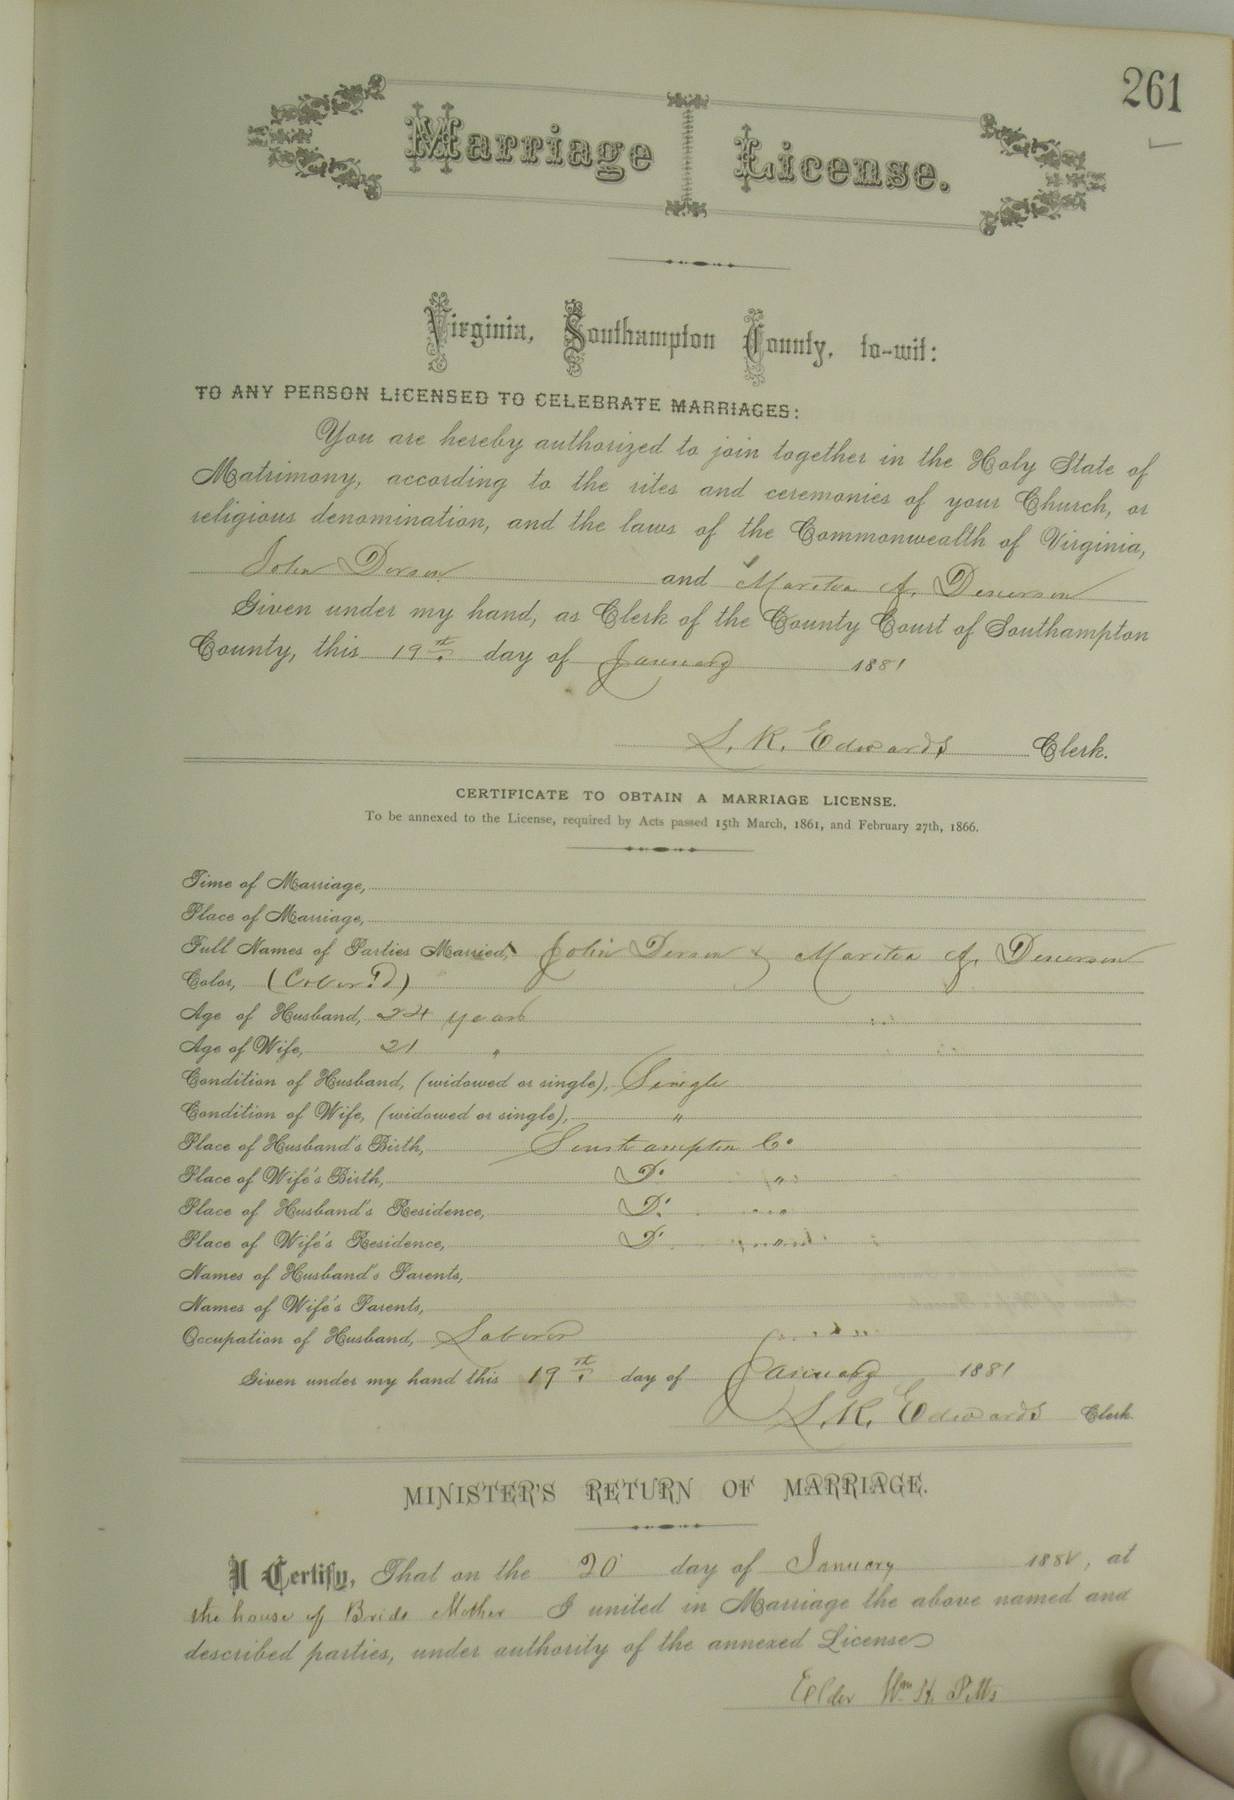 261
Marriage License.
Virginia, Southampton County, to-wit:
TO ANY PERSON LICENSED TO CELEBRATE MARRIAGES:
You are hereby authorized to join together in the Holy State of
Matrimony, according to the rites and ceremonies of your Church, or
religious denomination, and the laws of the Commonwealth of Virginia,
John and A.
Given under my hand, as Clerk of the County Court of Southampton
County, this 19th day of January 1881
L. R. Edwards Clerk.
CERTIFICATE TO OBTAIN A MARRIAGE LICENSE.
To be annexed to the License, required by Acts passed 15th March, 1861, and February 27th, 1866.
Time of Marriage,
Place of Marriage,
Full Names of Parties Married, John & A.
Color, (Color'd)
Age of Husband, 24 years
Age of Wife, 21 "
Condition of Husband, (widowed or single), Single
Condition of Wife, (widowed or single), "
Place of Husband's Birth, Southampton Co
Place of Wife's Birth, Do "
Place of Husband's Residence, Do
Place of Wife's Residence, Do
Names of Husband's Parents,
Names of Wife's Parents,
Occupation of Husband, Laborer
Given under my hand this 19th day of January 1881
L. R. Edwards Clerk
MINISTER'S RETURN OF MARRIAGE.
I Certify, That on the 20 day of January 188 , at
the house of Bride Mother I united in Marriage the above named and
described parties, under authority of the annexed License
Elder Wm H. Pitts